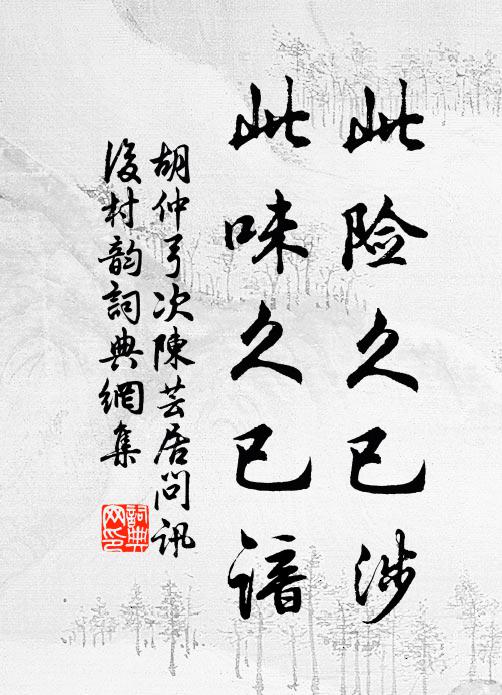 此险久已涉
此味久已谙
胡仲弓次陳芸居问讯
后村韵詞典網集
詞典网印